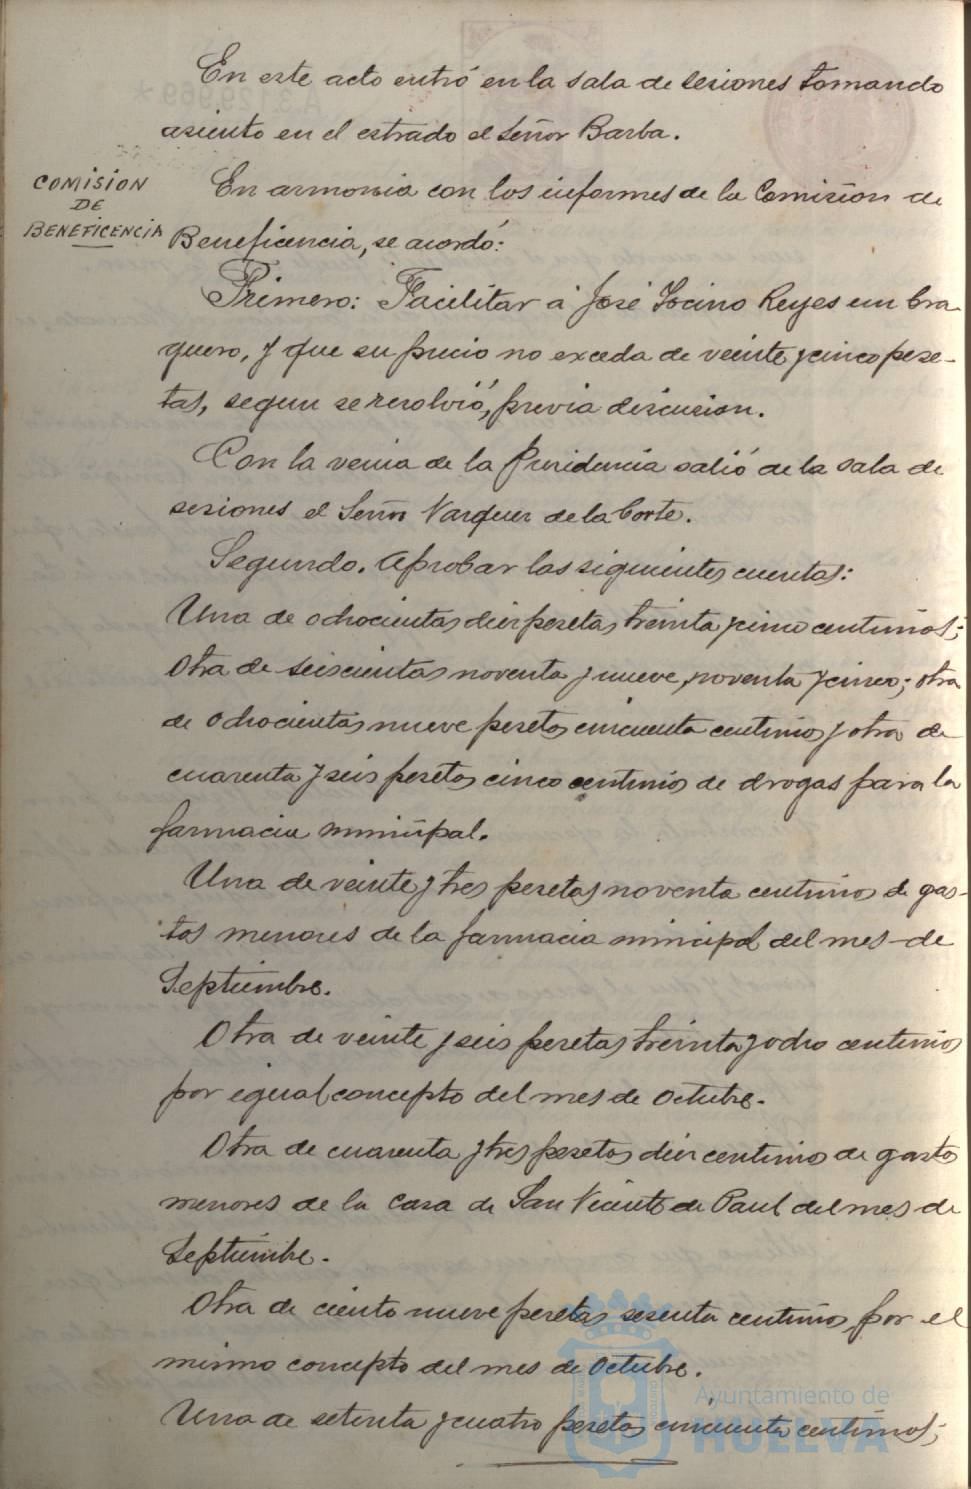 En este acto entró en la sala de sesiones tomando
asiento en el estrado el Señor Barba.
COMISION
DE
BENEFICENCIA
En armonia con los informes de la Comision de
Beneficencia, se acordó:
Primero: Facilitar á José Tocino Reyes un bra-
guero, y que su precio no exceda de veinte y cinco pese-
tas, segun se resolvió, previa discusion.
Con la venia de la Presidencia salió de la sala de
sesiones el Señor Vazquez de la Corte.
Segundo. Aprobar las siguientes cuentas:
Una de ochocientas diez pesetas treinta y cinco centimos;
Otra de seiscientas noventa y nueve, noventa y cinco; otra
de ochocientas nueve pesetas cincuenta centimos y otra de
cuarenta y seis pesetas cinco centimos de drogas para la
farmacia municipal.
Una de veinte y tres pesetas noventa centimos de gas-
tos menores de la farmacia municipal del mes de
Septiembre.
Otra de veinte y seis pesetas treinta y ocho centimos
por igual concepto del mes de Octubre.
Otra de cuarenta y tres pesetas diez centimos de gastos
menores de la Casa de San Vicente de Paul del mes de
Septiembre.
Otra de ciento nueve pesetas sesenta centimos, por el
mismo concepto del mes de Octubre.
Una de setenta y cuatro pesetas cincuenta centimos;
Ayuntamiento de
HUELVA